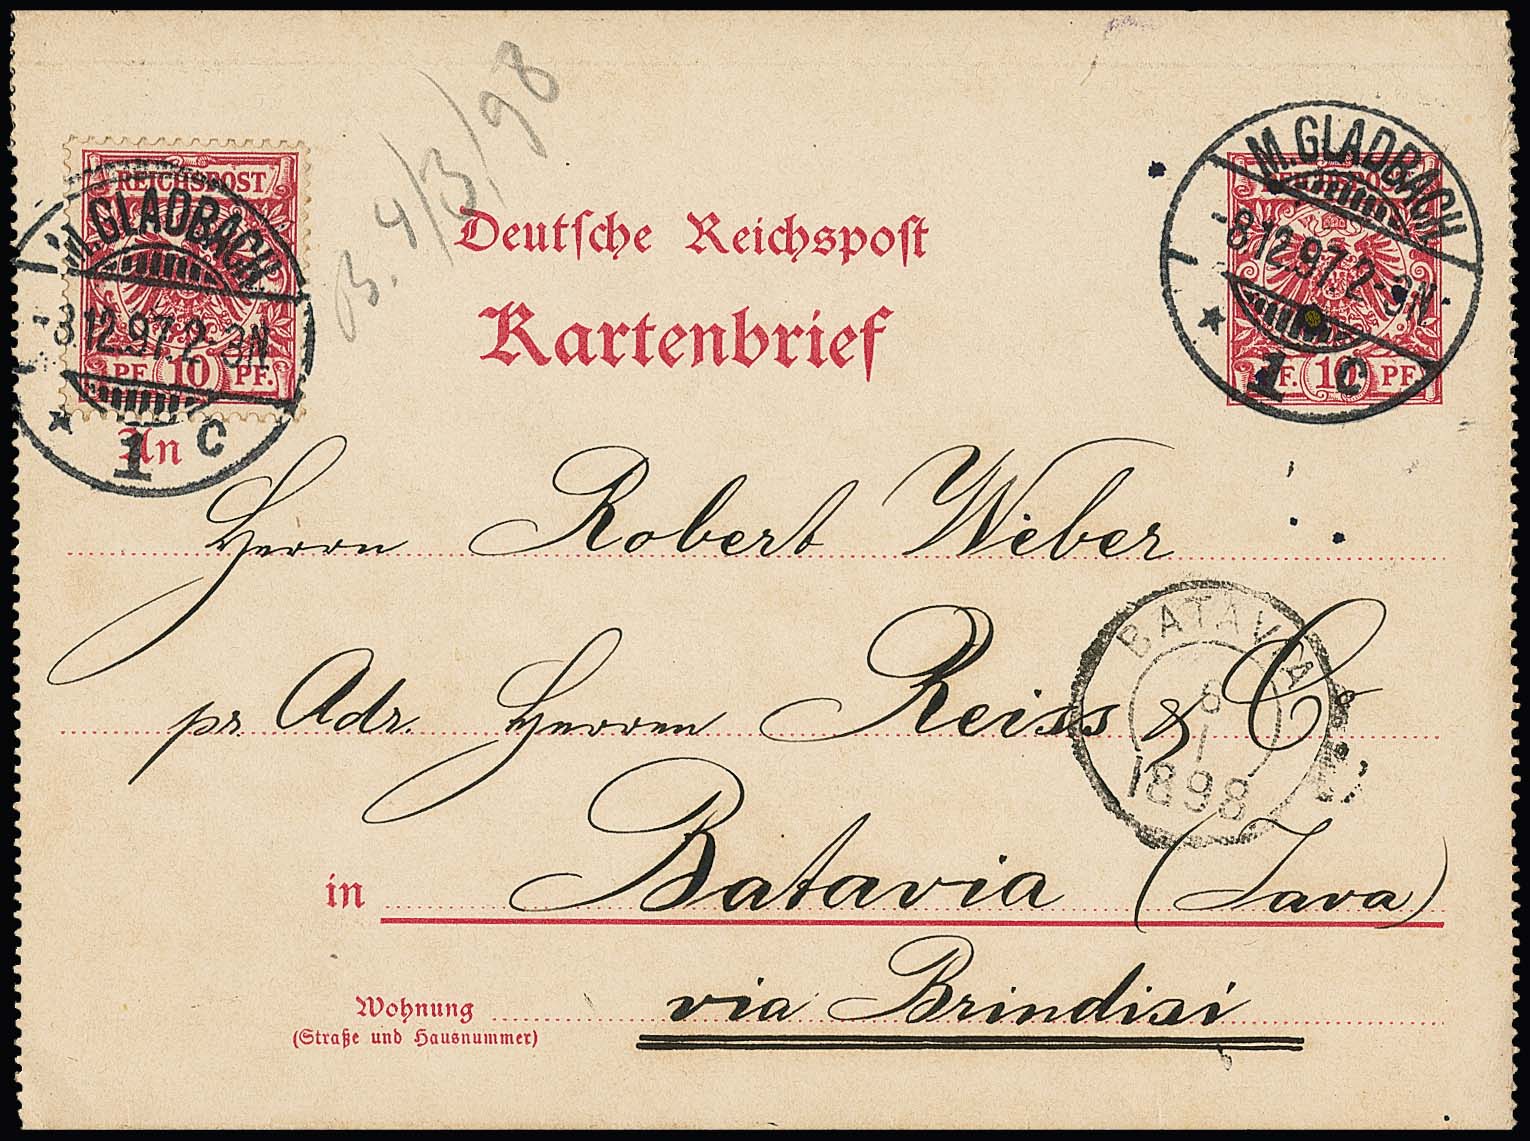 B. 4/3/98
REICHSPOST
M. GLADBACH
8.12.97.2-3N
PF. 10 PF.
* 1 c
Deutsche Reichspost
Kartenbrief
M. GLADBACH
-8.12.97.2-3N
PF. 10 PF.
* 1 c
An
Herrn Robert Weber
pr Adr. Herren Reiss & Co
BATAVIA
8
1
1898
in Batavia (Java)
Wohnung via Brindisi
(Straße und Hausnummer)